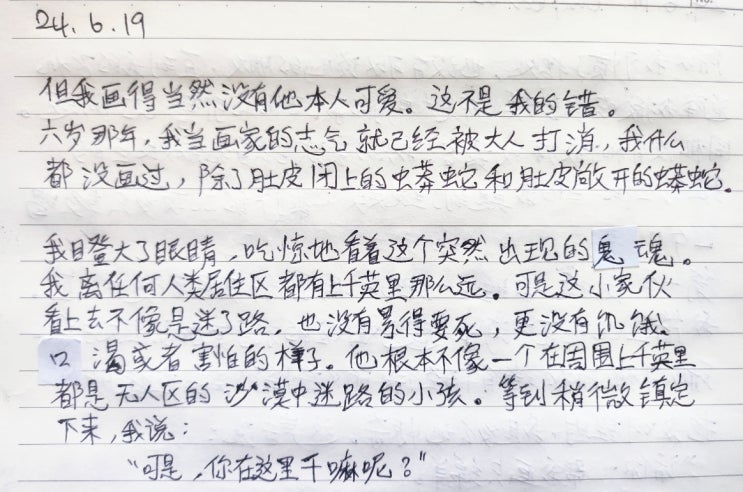 24.6.19
但我画得当然没有他本人可爱。这不是我的错。
六岁那年，我当画家的志气就已经被大人打消，我什么
都没画过，除了肚皮闭上的蟒蛇和肚皮敞开的蟒蛇。
我瞪大了眼睛，吃惊地看着这个突然出现的鬼魂。
我离任何人类居住区都有上千英里那么远。可是这小家伙
看上去不像是迷了路，也没有累得要死，更没有饥饿、
口渴或者害怕的样子。他根本不像一个在周围上千英里
都是无人区的沙漠中迷路的小孩。等到稍微镇定
下来，我说：
“可是，你在这里干嘛呢？”